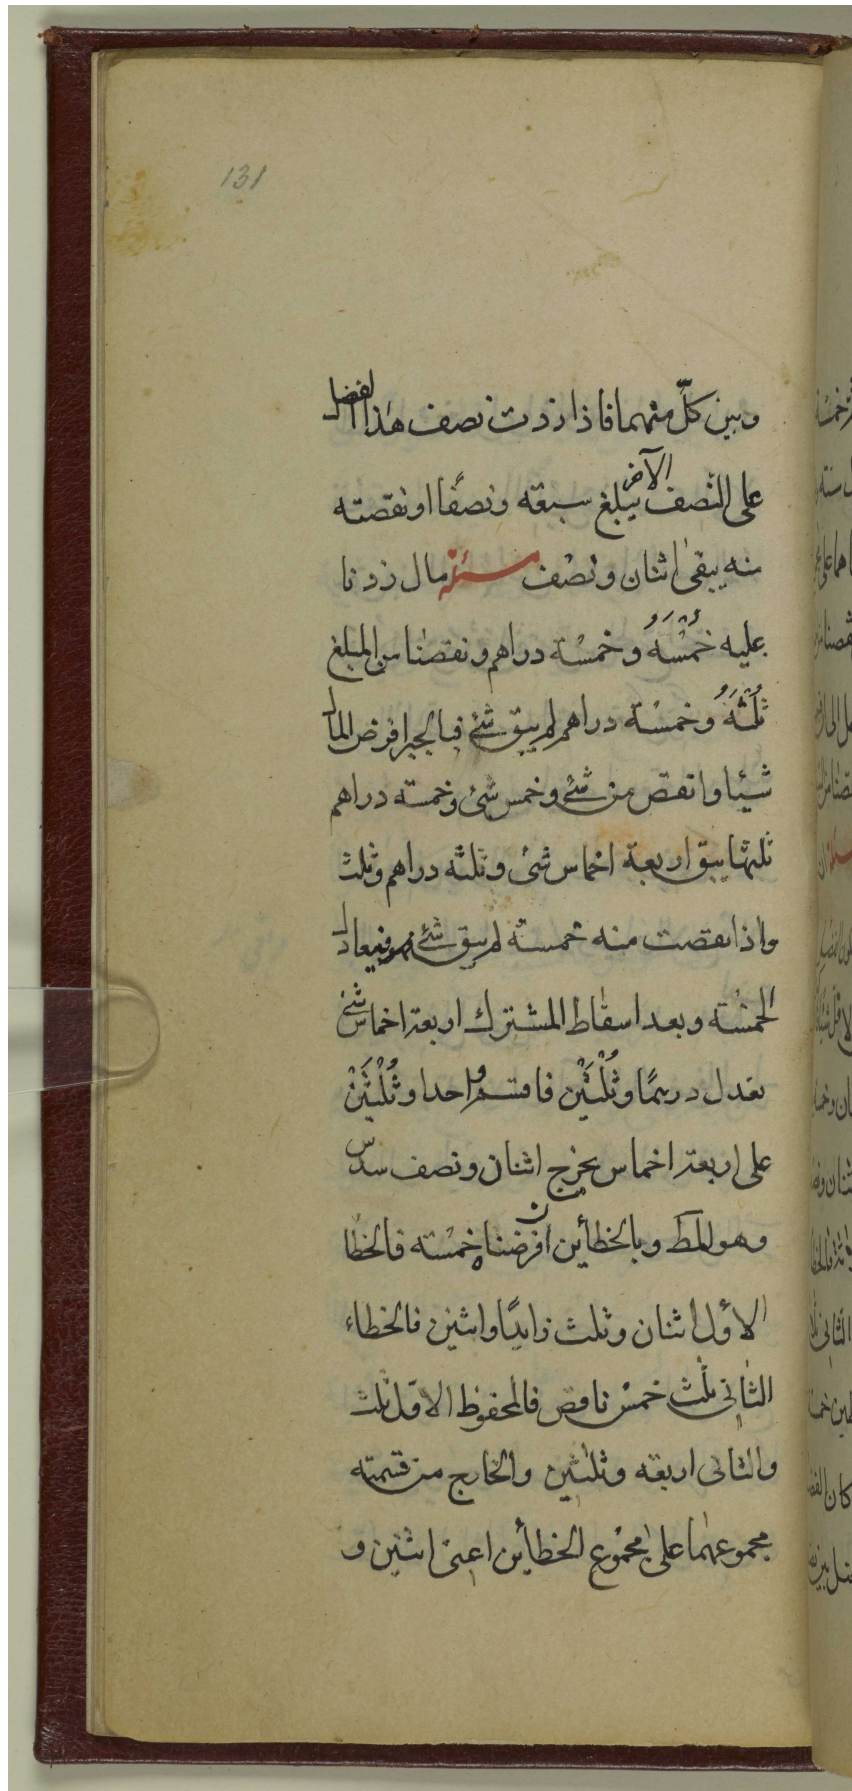 131
وبين كلّ منهما فاذا زدت نصف هٰذا الفضل
على النّصف الآخر يبلغ سبعة ونصفًا او نقصته
منه يبقى اثنان ونصف مسئلة مال زدنا
عليه خُمْسَهُ وخمسة دراهم ونقصنا من المبلغ
ثُلُثَهُ وخمسة دراهم لم يبق شئ فبالجبر افرض المال
شيئا وانقص من شئ وخمس شئ وخمسة دراهم
ثلثها يبق اربعة اخماس شئ وثلثة دراهم وثلث
واذا نقصت منه خمسة لم يبق شئ فهو فيعادل
الخمسة وبعد اسقاط المشترك اربعة اخماس شئ
يعدل درهمًا وثُلْثَيْن فاقسم واحدا وثُلْثَيْنْ
على اربعة اخماس يخرج اثنان ونصف سدس
وهو المط وبالخطأين ان فرضناه خمسة فالخطا
الاوّل اثنان وثلث زايدًا واثنين فالخطاء
الثانى ثلث خمس ناقص فالمحفوظ الاوّل ثلث
والثانى اربعة وثلثين والخارج من قسمته
مجموعهما على مجموع الخطأين اعنى اثنين و